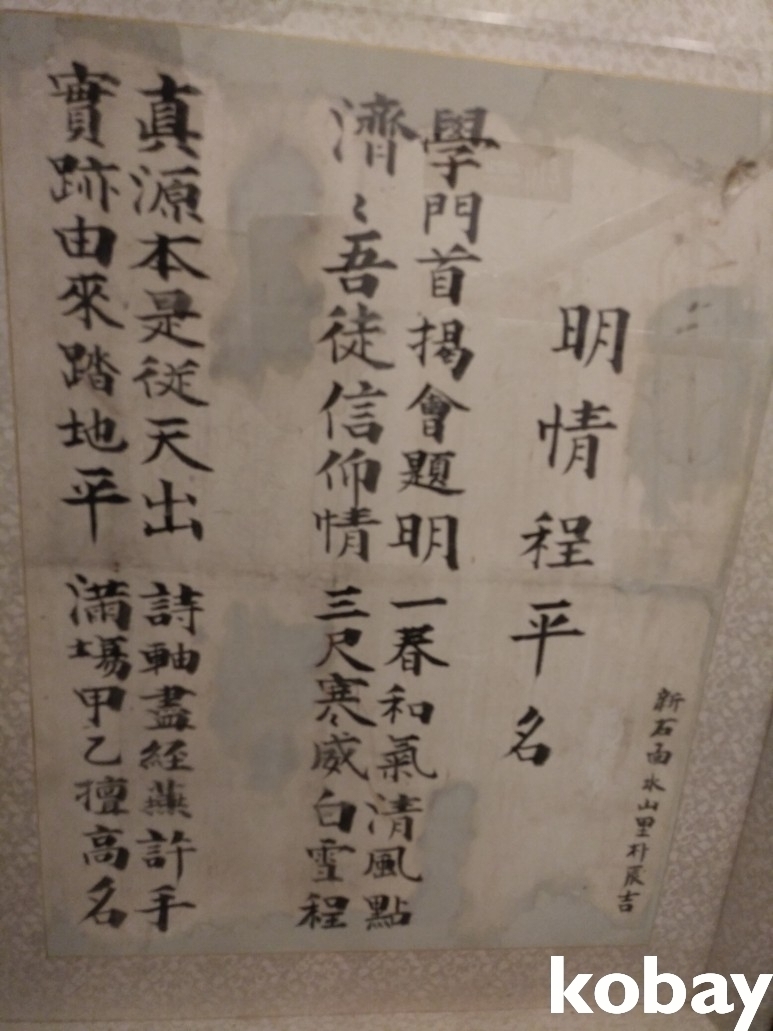 新石面水山里朴辰吉
明情程平名
學門首揭會題明 一春和氣清風點
濟〻吾徒信仰情 三尺寒威白雪程
真源本是從天出 詩軸盡經燕許手
實跡由來踏地平 滿場甲乙擅高名
kobay